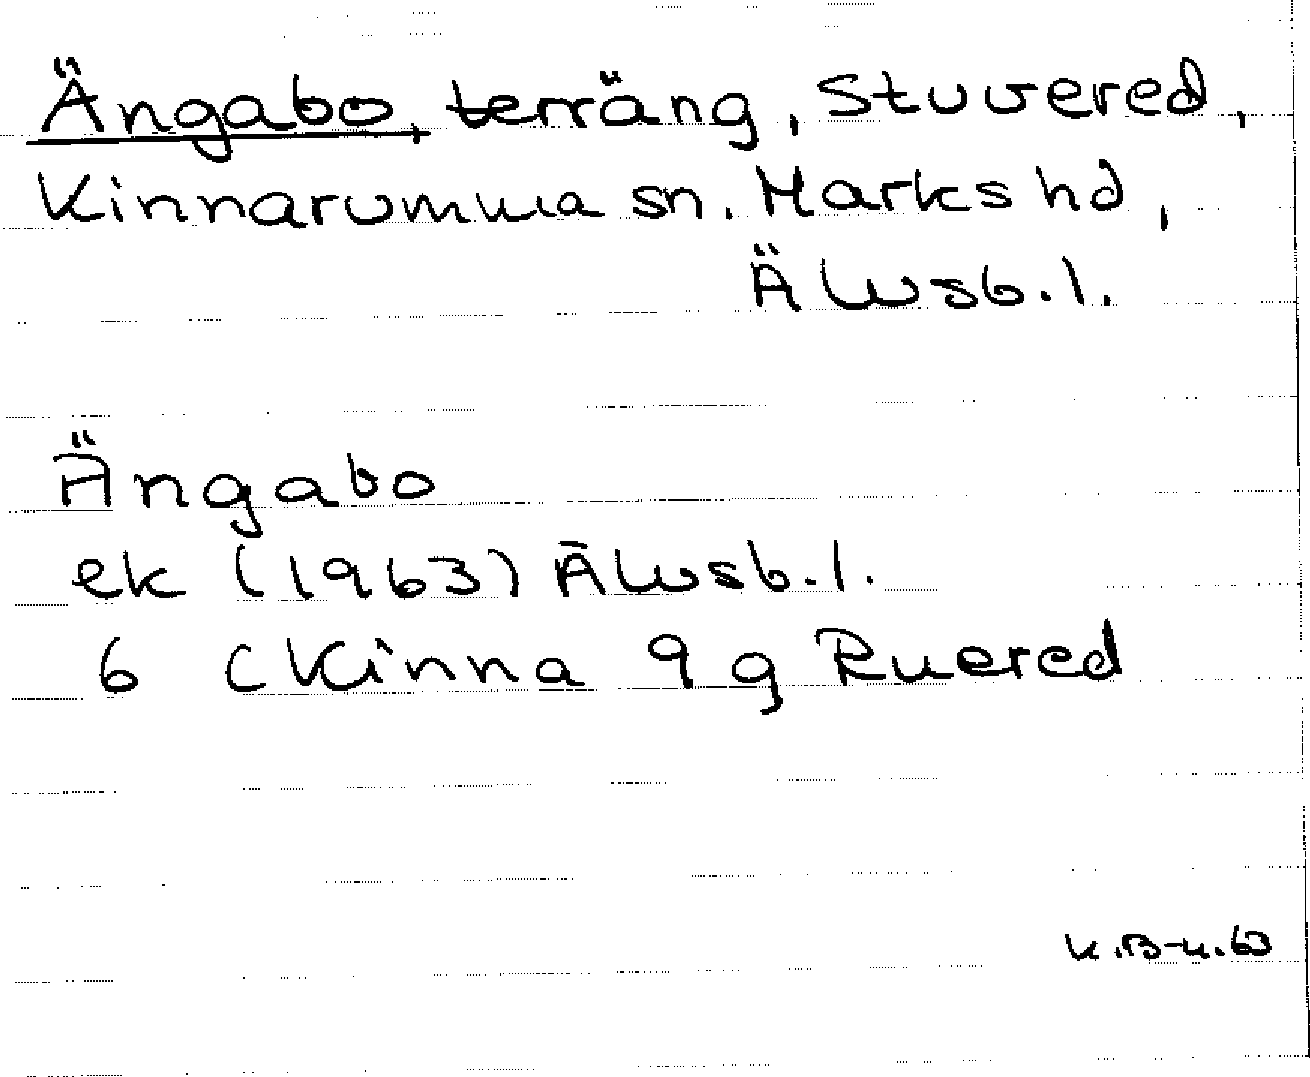 Ängabo, terräng, Stuvered,
Kinnarumma sn. Marks hd,
Älvsb. l.
Ängabo
ek (1963) Älvsb. l.
6 C Kinna 9 g Ruered